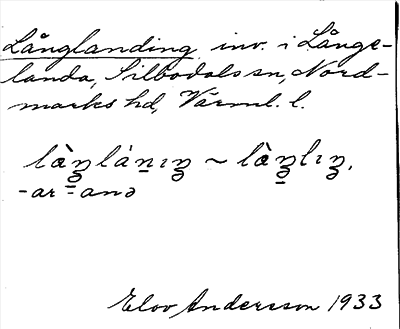 Långlanding inv. i Långe-
landa, Silbodals sn, Nord-
marks hd, Värml. l.
lœ̀ŋláni̱ŋ ~ lœ̀ŋlıŋ,
-ar -anə
Elov Andersson 1933